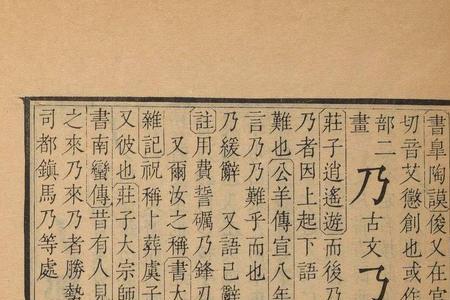 書皐陶謨俊乂在官
切音艾懲創也或作
部二 乃 古文
畫
莊子逍遙遊而後乃
乃者因上起下語
難也公羊傳宣八年
言乃乃難乎而也
乃緩辭 又語已辭
註用費誓礪乃鋒刃
又爾汝之稱書大
雜記祝稱卜葬虞子
又彼也莊子大宗師
書南蠻傳昔有人見
之來乃來乃者勝勢
司都鎮馬乃等處